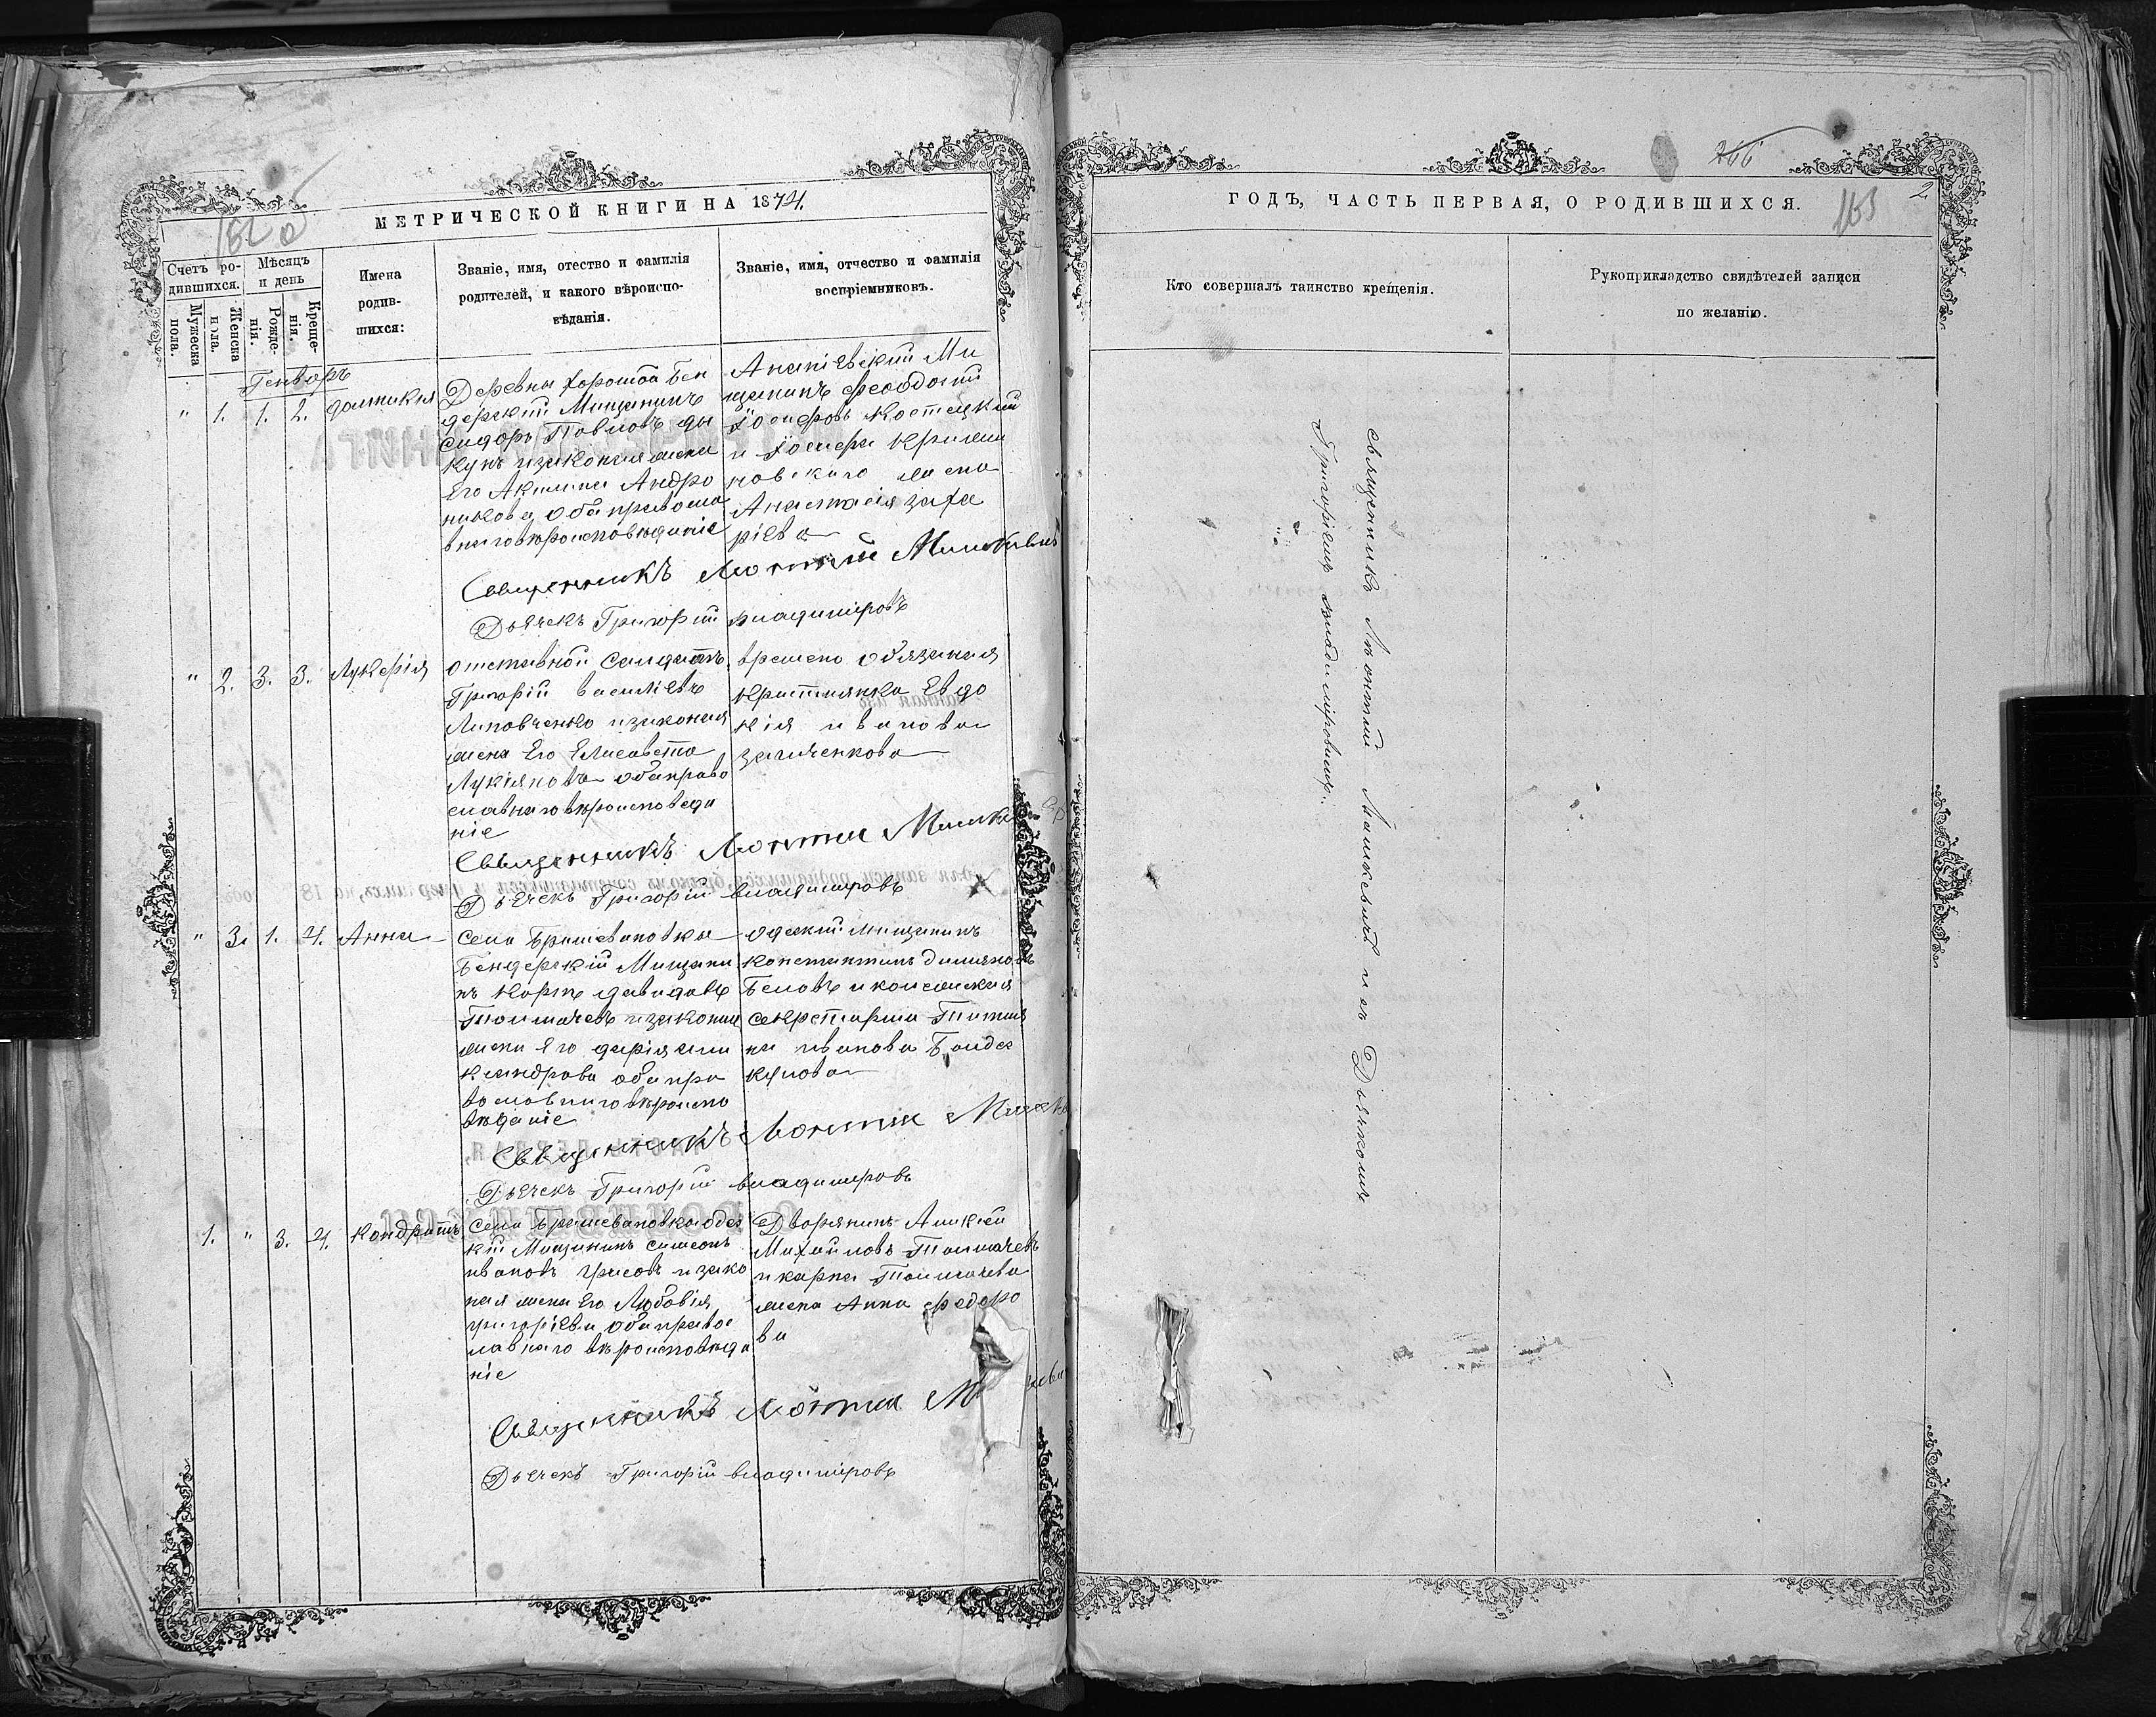 МЕТРИЧЕСКОЙ КНИГИ НА 1874.
Счетъ ро-
дившихся.
Мѣсяцъ
и день
Мужеска
пола.
Женска
пола.
Рожде-
нія.
Креще-
нія.
Имена
родив-
шихся:
Званіе, имя, отество и фамилія
родителей, и какого вѣроиспо-
вѣданія.
Званіе, имя, отчество и фамилія
воспріемниковъ.
Генваръ
" 1. 1. 2. Домникія
Деревны Хорошой Бен
дерский Мищанинъ
Сидоръ Павловъ Ды
кунъ изаконная жена
Его Акилина Андро
никова оба православ
внаго вѣроисповѣданіе
Ананіевский Ми
щанинъ Феодосий
Іосифовъ Костецкий
и Іосифа Крижа
новскаго жена
Анастасія Заха
ріева
Священникъ Леонтий Машкевичъ
Дьячекъ Григорій Владимировъ
" 2. 3. 3. Лукерія
отставной Салдатъ
Григорій Василіевъ
Липовченко изаконная
жена Его Елисавета
Лукіянова оба право
славнаго вѣроисповеда
ніе
времено обязаная
Крестиянка Евдо
кія Иванова
Священникъ Леонтий
Дьячекъ Григорій Владимировъ
" 3. 1. 4. Анна
Села
Бендерскій Мищани
нъ Карпъ Давидовъ
Толмачевъ изаконная
жена Его Дарія Але
ксандрова оба пра
вославнаго вѣроиспо
вѣданіе
Одеский Мищанинъ
Константинъ
Бѣловъ и
секретарша Татия
на Иванова
Священникъ Леонтий
Дьячекъ Григорій Владимировъ
1. " 3. 4. Кондратъ
Села
кій Мищанинъ Симеонъ
Ивановъ изако
ная жена Его Любовія
Григоріева оба правос
лавнаго вѣроисповѣда
ніе
Дворянинъ Алексѣй
Михайловъ Толмачевъ
и Карпа Толмачева
жена Анна Федоро
ва
Священникъ Леонтий
Дьячекъ Григорій Владимировъ
ГОДЪ, ЧАСТЬ ПЕРВАЯ, О РОДИВШИХСЯ.
2
Кто совершалъ таинство крещенія.
Рукоприкладство свидѣтелей записи
по желанію.
Священникъ Леонтий Машкевичъ и съ Дьячкомъ
Григоріемъ Владиміровимъ